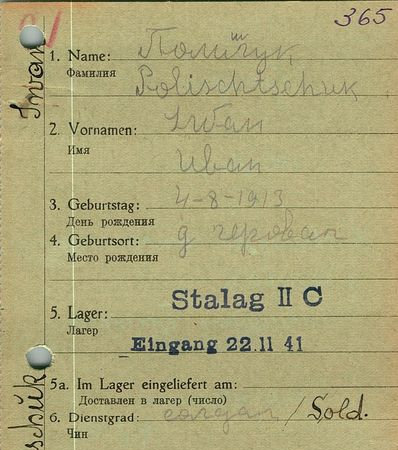 365
1. Name: Полищук
Фамилия
Polischtschuk
2. Vornamen: Iwan
Имя
Иван
3. Geburtstag: 4-8-1913
День рождения
4. Geburtsort: д
Место рождения
Stalag II C
5. Lager:
Лагер
Eingang 22. 11 41
5a. Im Lager eingeliefert am:
Доставлен в лагер (число)
6. Dienstgrad: солдат / Sold.
Чин
Iwan
schuk